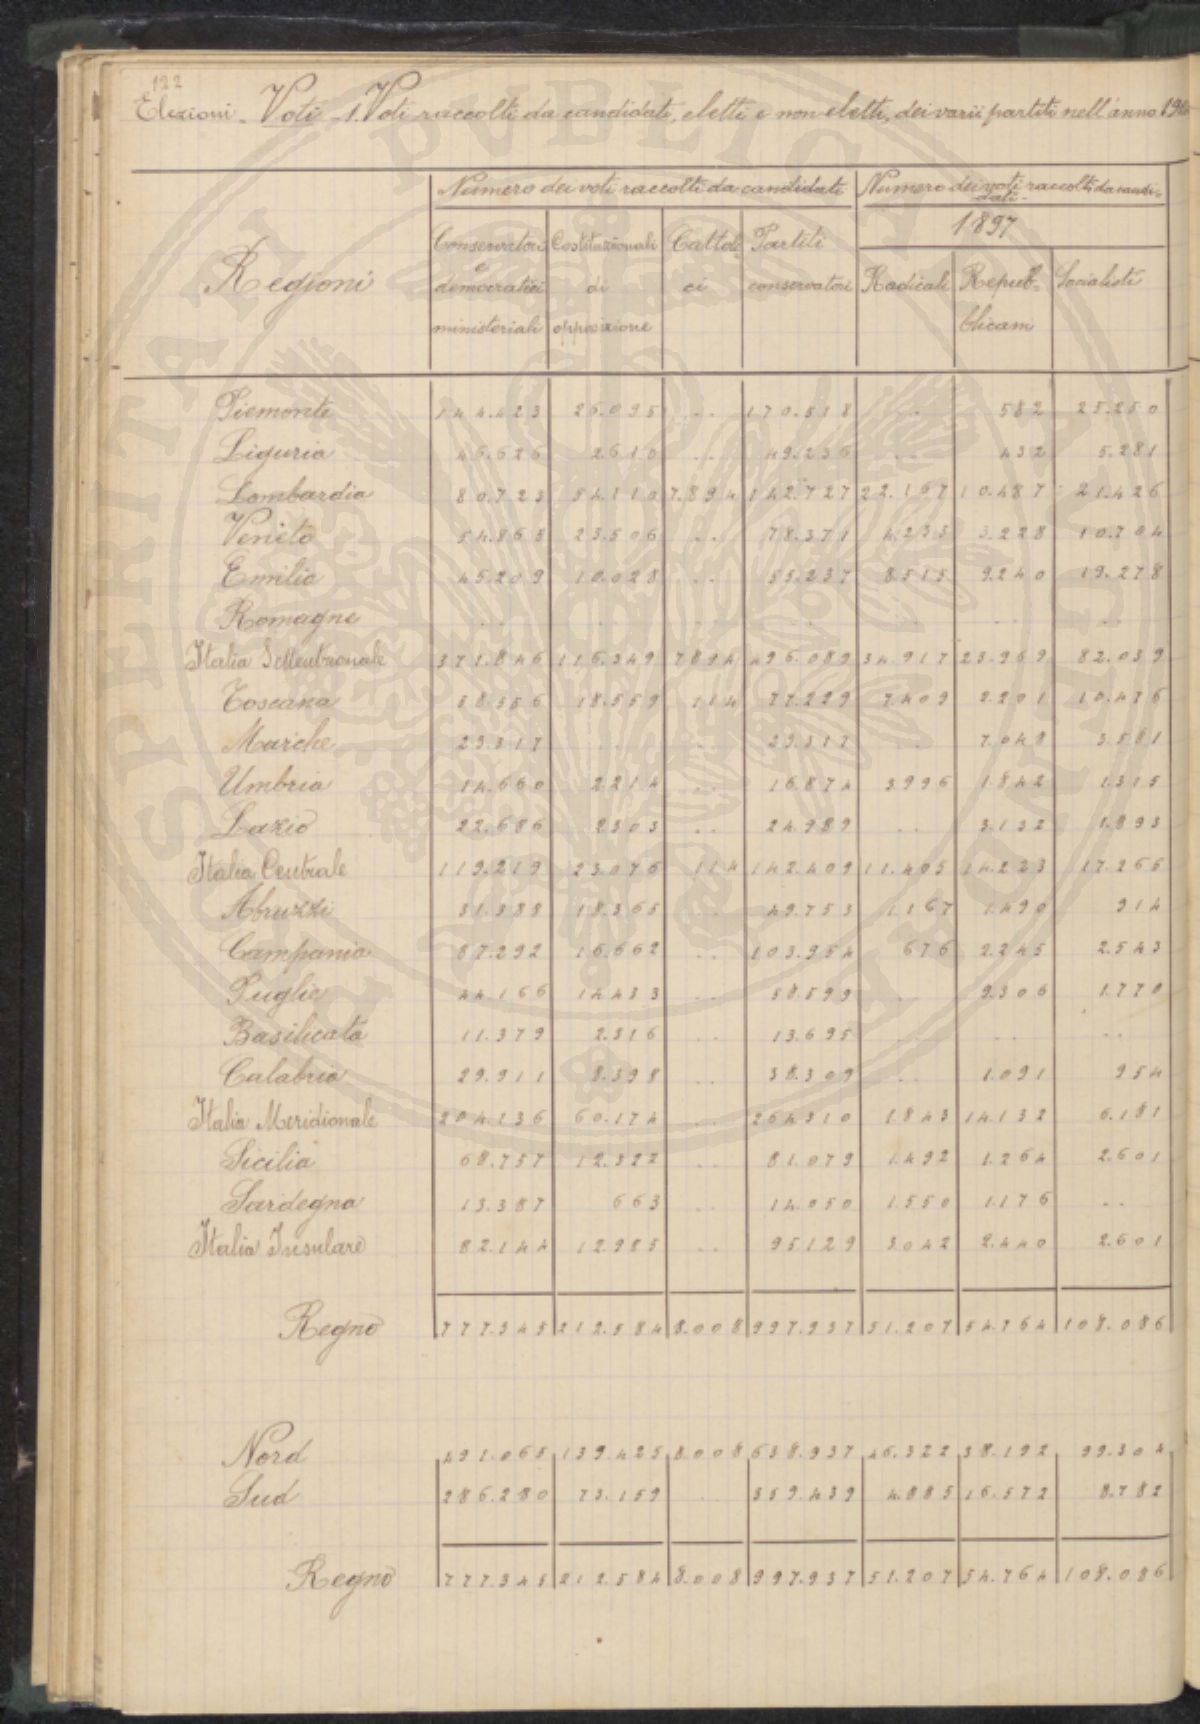 122
Elezioni - Voti - 1. Voti raccolti da candidati, eletti e non eletti, dei varii partiti nell'anno
Numero dei voti raccolti da candidati Numero dei voti raccolti da candidati
1897
Regioni Conservatori e democratici ministeriali Costituzionali di opposizione Cattolici Partiti conservatori Radicali Repubblicani Socialisti
Piemonte 144.423 26.095 .. 170.518 .. 582 25.250
Liguria 46.626 2.610 .. 49.236 .. 432 5.281
Lombardia 80.723 54.110 7.894 142.727 22.167 10.487 21.426
Veneto 54.865 23.506 .. 78.371 4.235 3.228 10.704
Emilia 45.209 10.028 .. 55.237 8.515 9.240 19.278
Romagne .. .. .. .. .. .. ..
Italia Settentrionale 371.846 116.349 7894 496.089 34.917 23.969 82.039
Toscana 58.556 18.559 114 77.229 7.409 2.201 10.476
Marche 23.317 .. .. 23.317 .. 7.048 3.581
Umbria 14.660 2214 .. 16.874 3.996 1.842 1.315
Lazio 22.686 2303 .. 24.989 .. 3.132 1.893
Italia Centrale 119.219 23.076 114 142.409 11.405 14.223 17.265
Abruzzi 31.388 18.365 .. 49.753 1.167 1.490 914
Campania 87.292 16.662 .. 103.954 676 2.245 2.543
Puglie 44.166 14.433 .. 58.599 .. 9.306 1.770
Basilicata 11.379 2.316 .. 13.695 .. .. ..
Calabria 29.911 8.398 .. 38.309 .. 1.091 954
Italia Meridionale 204.136 60.174 .. 264.310 1843 14.132 6.181
Sicilia 68.757 12.322 .. 81.079 1.492 1.264 2.601
Sardegna 13.387 663 .. 14.050 1.550 1.176 ..
Italia Insulare 82.144 12.985 .. 95.129 3.042 2.440 2.601
Regno 777.345 212.584 8.008 997.937 51.207 54.764 108.086
Nord 491.065 139.425 8.008 638.937 46.322 38.192 99.304
Sud 286.280 73.159 .. 359.439 4.885 16.572 8.782
Regno 777.345 212.584 8.008 997.937 51.207 54.764 108.086